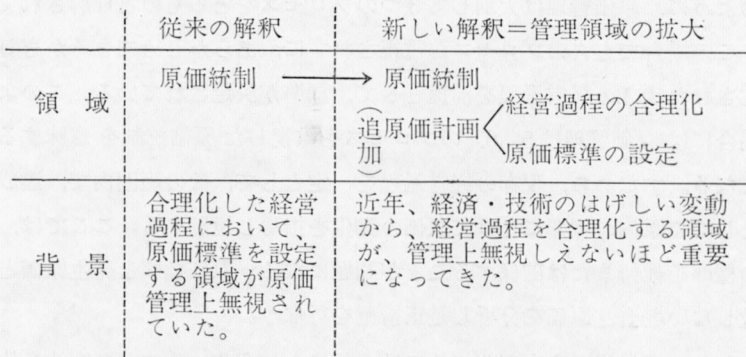 従来の解釈
新しい解釈＝管理領域の拡大
領域
原価統制
原価統制
（追加）
原価計画
経営過程の合理化
原価標準の設定
背景
合理化した経営
過程において、
原価標準を設定
する領域が原価
管理上無視され
ていた。
近年、経済・技術のはげしい変動
から、経営過程を合理化する領域
が、管理上無視しえないほど重要
になってきた。